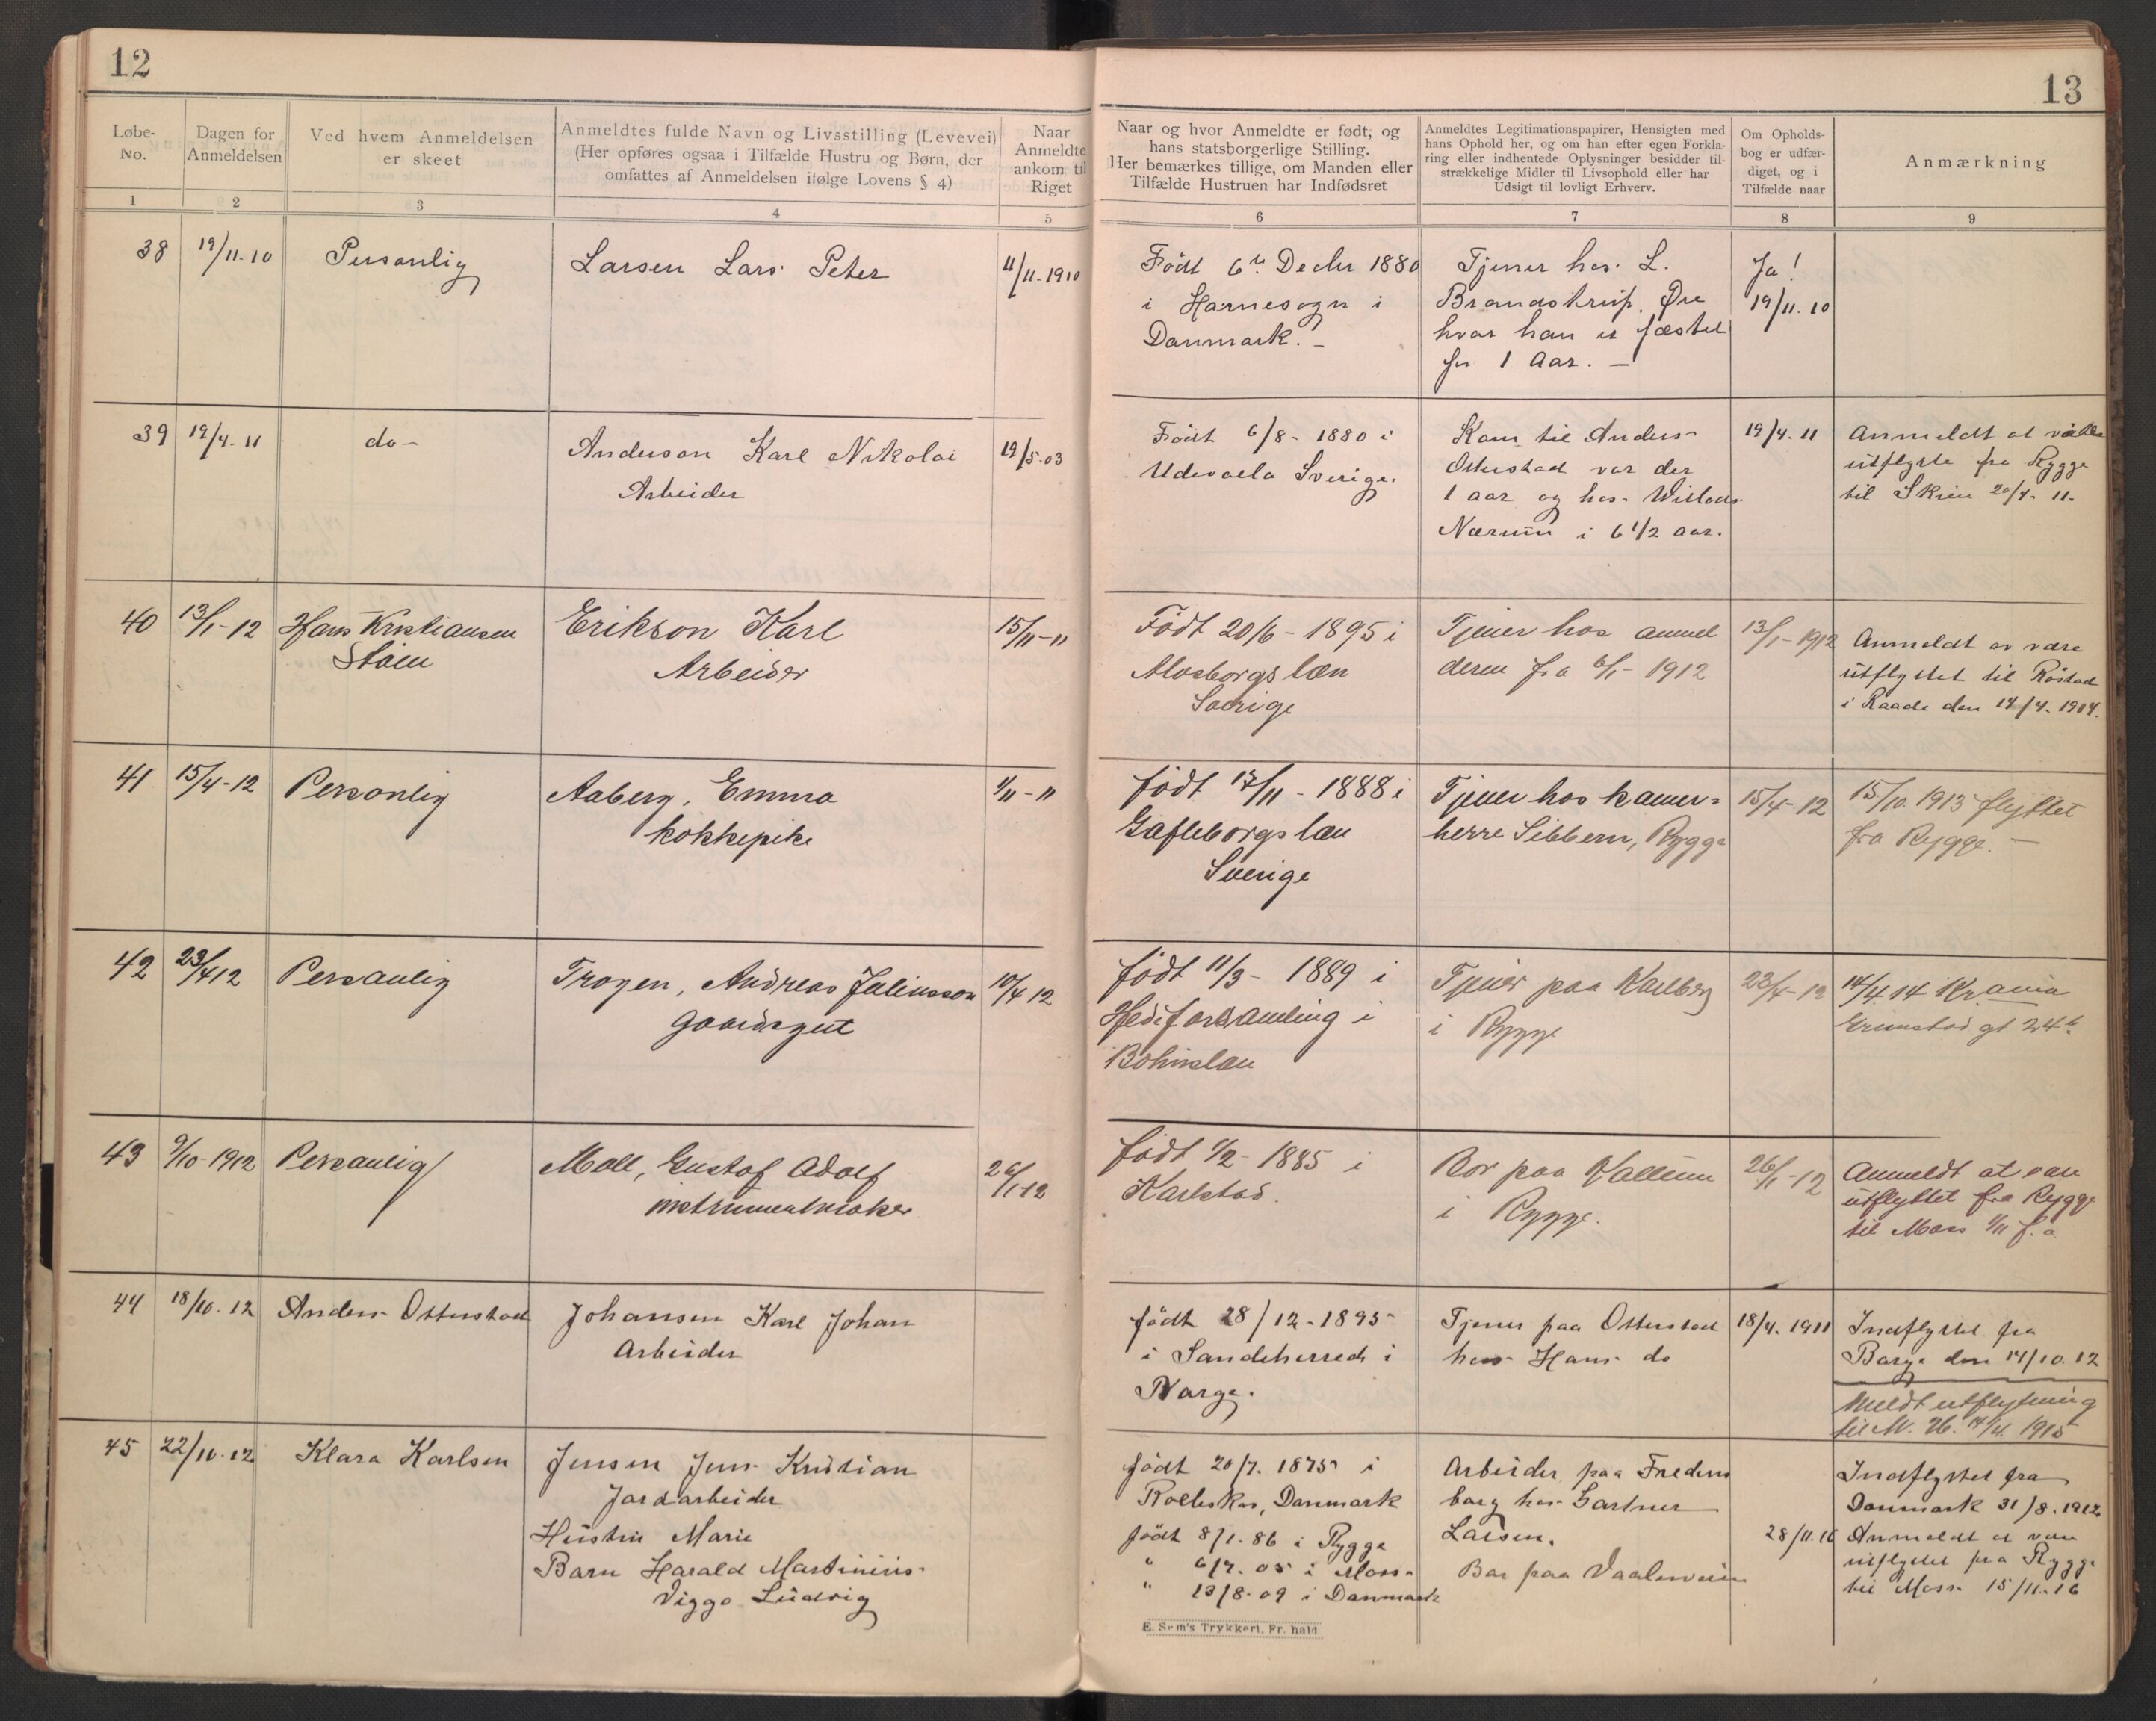 12
13
Løbe-
No.
Dagen for
Anmeldelsen
Ved hvem Anmeldelsen
er skeet
Anmeldtes fulde Navn og Livsstilling (Levevei)
(Her opføres ogsaa i Tilfælde Hustru og Børn, der
omfattes af Anmeldelsen ifølge Lovens § 4)
Naar
Anmeldte
ankom til
Riget
Naar og hvor Anmeldte er født, og
hans statsborgerlige Stilling.
Her bemærkes tillige, om Manden eller
Tilfælde Hustruen har Indfødsret
Anmeldtes Legitimationspapirer, Hensigten med
hans Ophold her, og om han efter egen Forkla-
ring eller indhentede Oplysninger besidder til-
strækkelige Midler til Livsophold eller har
Udsigt til lovligt Erhverv.
Om Opholds-
bog er udfær-
diget, og i
Tilfælde naar
Anmærkning
1
2
3
4
5
6
7
8
9
38
19/11-10
Personlig
Larsen Lars Peter
11/11-1910
Født 6te Decbr 1880
i Harnesogn i
Danmark. -
Tjener hos L.
Brandstrup, Øre
hvor han er fæstet
for 1 Aar. -
Ja!
19/11.10
39
19/4-11
do-
Anderson Karl Nikolai
Arbeider
19/5-03
Født 6/8- 1880 i
Udevalla Sverige.
Kom til Anders
Otterstad var der
1 aar og hos
Nærum i 6 1/2 aar.
19/4.11
Anmeldt at være
utflytte fra Rygge
til Skien 20/4- 11.
40
13/1-12
Hans Kristiansen
Støen
Erikson Karl
Arbeider
15/11-11
Født 20/6 - 1895 i
Alvsborgs læn
Sverige
Tjener hos anmel
deren fra 6/1- 1912
13/1-1912
Anmeldt av være
utflyttet til Råstad
i Raade den 14/4.
41
15/4-12
Personlig
Aaberg, Emma
kokkepike
1/11-11
født 17/11 - 1888 i
Gafleborgs læn
Sverige
Tjener hos kamer-
herre Sibbern, Rygge
15/4-12
15/10.1913 flyttet
fra Rygge. -
42
23/4 12
Personlig
Trogen, Andreas Juliusson
gaardsgut
10/4 12
født 11/3- 1889 i
Hede forsamling i
Bohuslæn
Tjener paa Karlberg
i Rygge
23/4-12
14/4 14 Krania
Grimstad gt 24 b.
43
9/10-1912
Personlig
Moll, Gustaf Adolf
instrumentmaker
26/1-12
født 1/2- 1885 i
Karlstad.
Bor paa Vallum
i Rygge.
26/1-12
Anmeldt at være
utflyttet fra Rygge
til Moss 1/11 f. a
44
18/10.12
Anders Otterstad
Johansen Karl Johan
Arbeider
født 28/12-1895
i Sandeherred i
Norge.
Tjener paa Otterstad
hos Hans do
18/4.1911
Indflyttet fra
Borge den 14/10.12
Meldt utflytning
til 14/4. 1915
45
22/10.12
Klara Karlsen
Jensen Jens Kristian
Jordarbeider
Hustru Marie
Barn Harald Martinius
Viggo Ludvig
født 20/7. 1875 i
Danmark
født 8/1.86 i Rygge
" 6/7. 05 i Moss
" 13/8-09 i Danmark
Arbeider paa Fredens
borg hos Gartner
Larsen.
Bor paa
28/11.16
Indflyttet fra
Danmark 31/8.1912
Anmeldt at være
utflyttet fra Rygge
til Moss 15/11-16
E. Sem's Trykkeri, Fr. hald